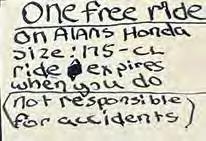 One free ride
on Alans Honda
size: 175-CL
ride expires
when you do
(not responsible
for accidents)